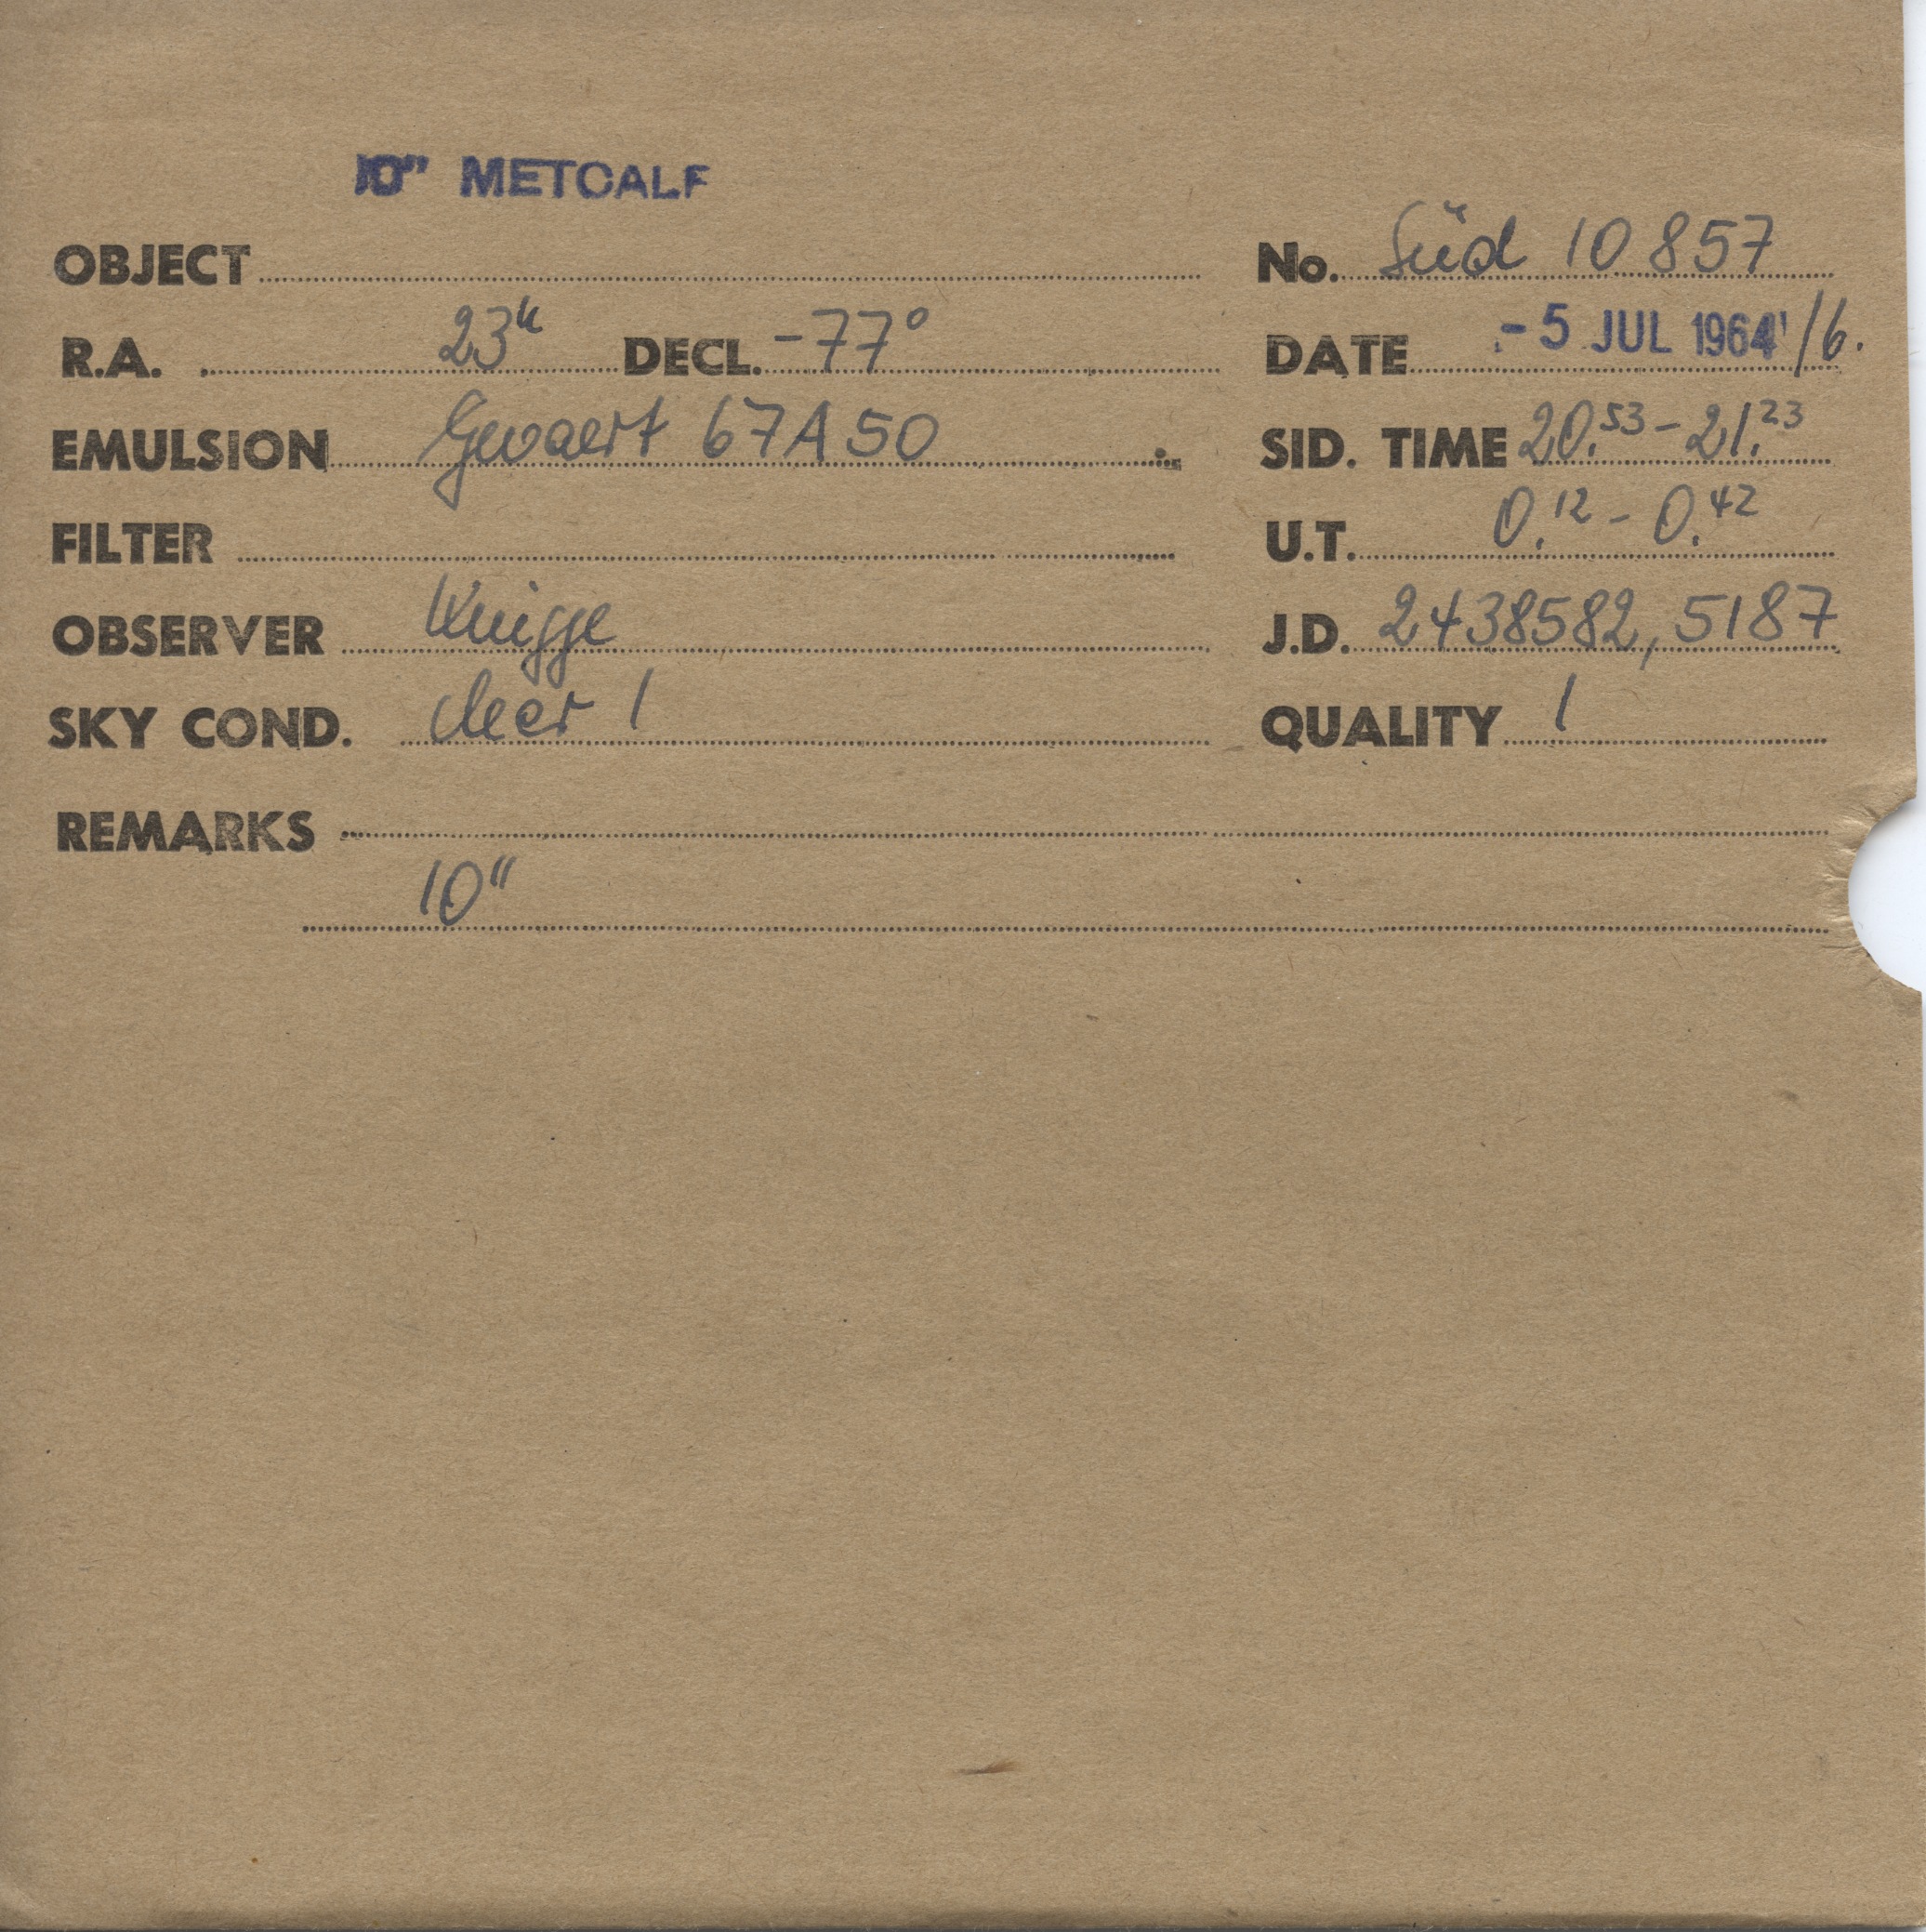 10" METCALF
OBJECT No. Süd 10 857
R.A. 23h DECL. -77° DATE -5 JUL 1964 /6.
EMULSION Gevaert 67A50 SID. TIME 20.53 - 21.23
FILTER U.T. 0.12 - 0.42
OBSERVER Knigge J.D. 2438582,5187
SKY COND. clear 1 QUALITY 1
REMARKS
10"